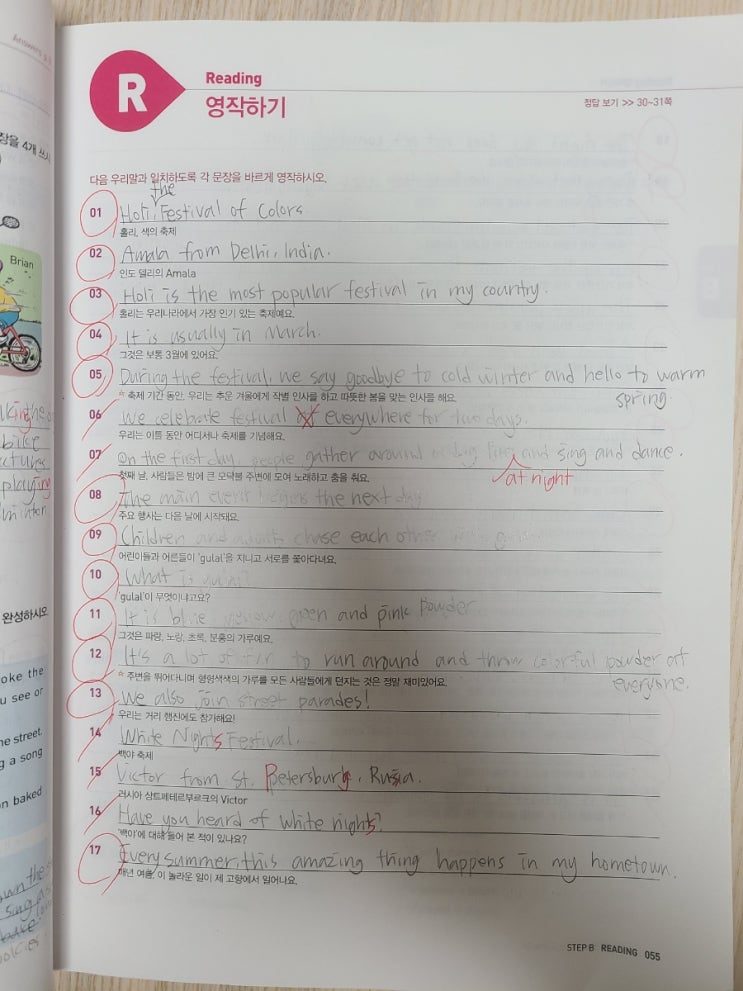 Answers
장을 4개 쓰시
Brian
R
Reading
영작하기
정답 보기 >> 30~31쪽
다음 우리말과 일치하도록 각 문장을 바르게 영작하시오.
the
01 Holi, Festival of Colors
홀리, 색의 축제
02 Amala from Delhi, India.
인도 델리의 Amala
03 Holi is the most popular festival in my country.
홀리는 우리나라에서 가장 인기 있는 축제예요.
04 It is usually in March.
그것은 보통 3월에 있어요.
05 During the festival, we say goodbye to cold winter and hello to warm
spring.
☆ 축제 기간 동안, 우리는 추운 겨울에게 작별 인사를 하고 따뜻한 봄을 맞는 인사를 해요.
06 We celebrate festival everywhere for two days.
우리는 이틀 동안 어디서나 축제를 기념해요.
07 On the first day, people gather around and sing and dance.
at night
첫째 날, 사람들은 밤에 큰 모닥불 주변에 모여 노래하고 춤을 춰요.
08 The main event begins the next day
주요 행사는 다음 날에 시작돼요.
09 Children and adults chase each other
어린이들과 어른들이 'gulal'을 지니고 서로를 쫓아다녀요.
10 What is gulal?
'gulal'이 무엇이냐고요?
11 It is blue, yellow, green and pink powder.
그것은 파랑, 노랑, 초록, 분홍의 가루예요.
12 It's a lot of fun to run around and throw colorful powder at
everyone.
☆ 주변을 뛰어다니며 형형색색의 가루를 모든 사람들에게 던지는 것은 정말 재미있어요.
13 We also join street parades!
우리는 거리 행진에도 참가해요!
14 White Nights Festival.
백야 축제
15 Victor from St. Petersburg, Russia.
러시아 상트페테르부르크의 Victor
16 Have you heard of white nights?
'백야'에 대해 들어 본 적이 있나요?
17 Every summer, this amazing thing happens in my hometown.
매년 여름, 이 놀라운 일이 제 고향에서 일어나요.
완성하시오
oke the
u see or
he street.
g a song
n baked
STEP B READING 055